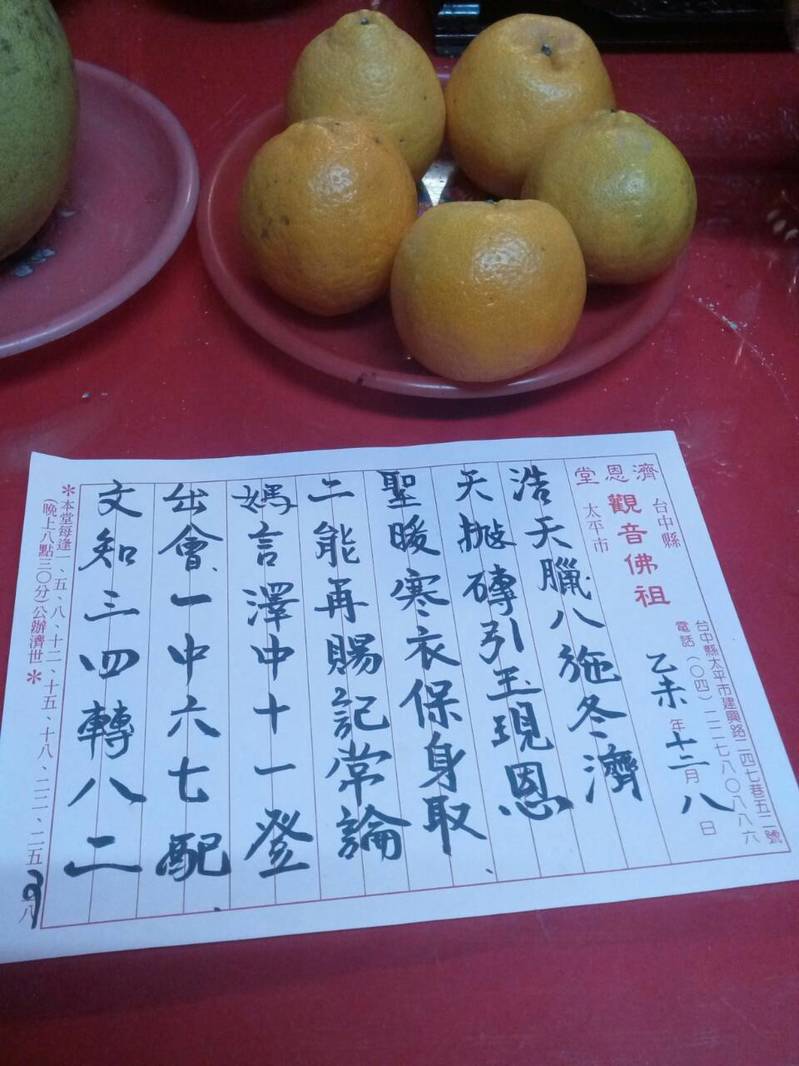 台中縣
太平市
濟恩堂
觀音佛祖
台中縣太平市建興路二四七巷五二號
電話(〇四)二二七八〇八八六
乙未年十二月八日
浩天臘八施冬濟
天拋磚引玉現恩
聖暖寒衣保身取
二能再賜記常論
媽言澤中十一登
出會一中六七配
文知三四轉八二
*本堂每逢一、五、八、十二、十五、十八、二二、二五、八
(晚上八點三〇分)公辦濟世*